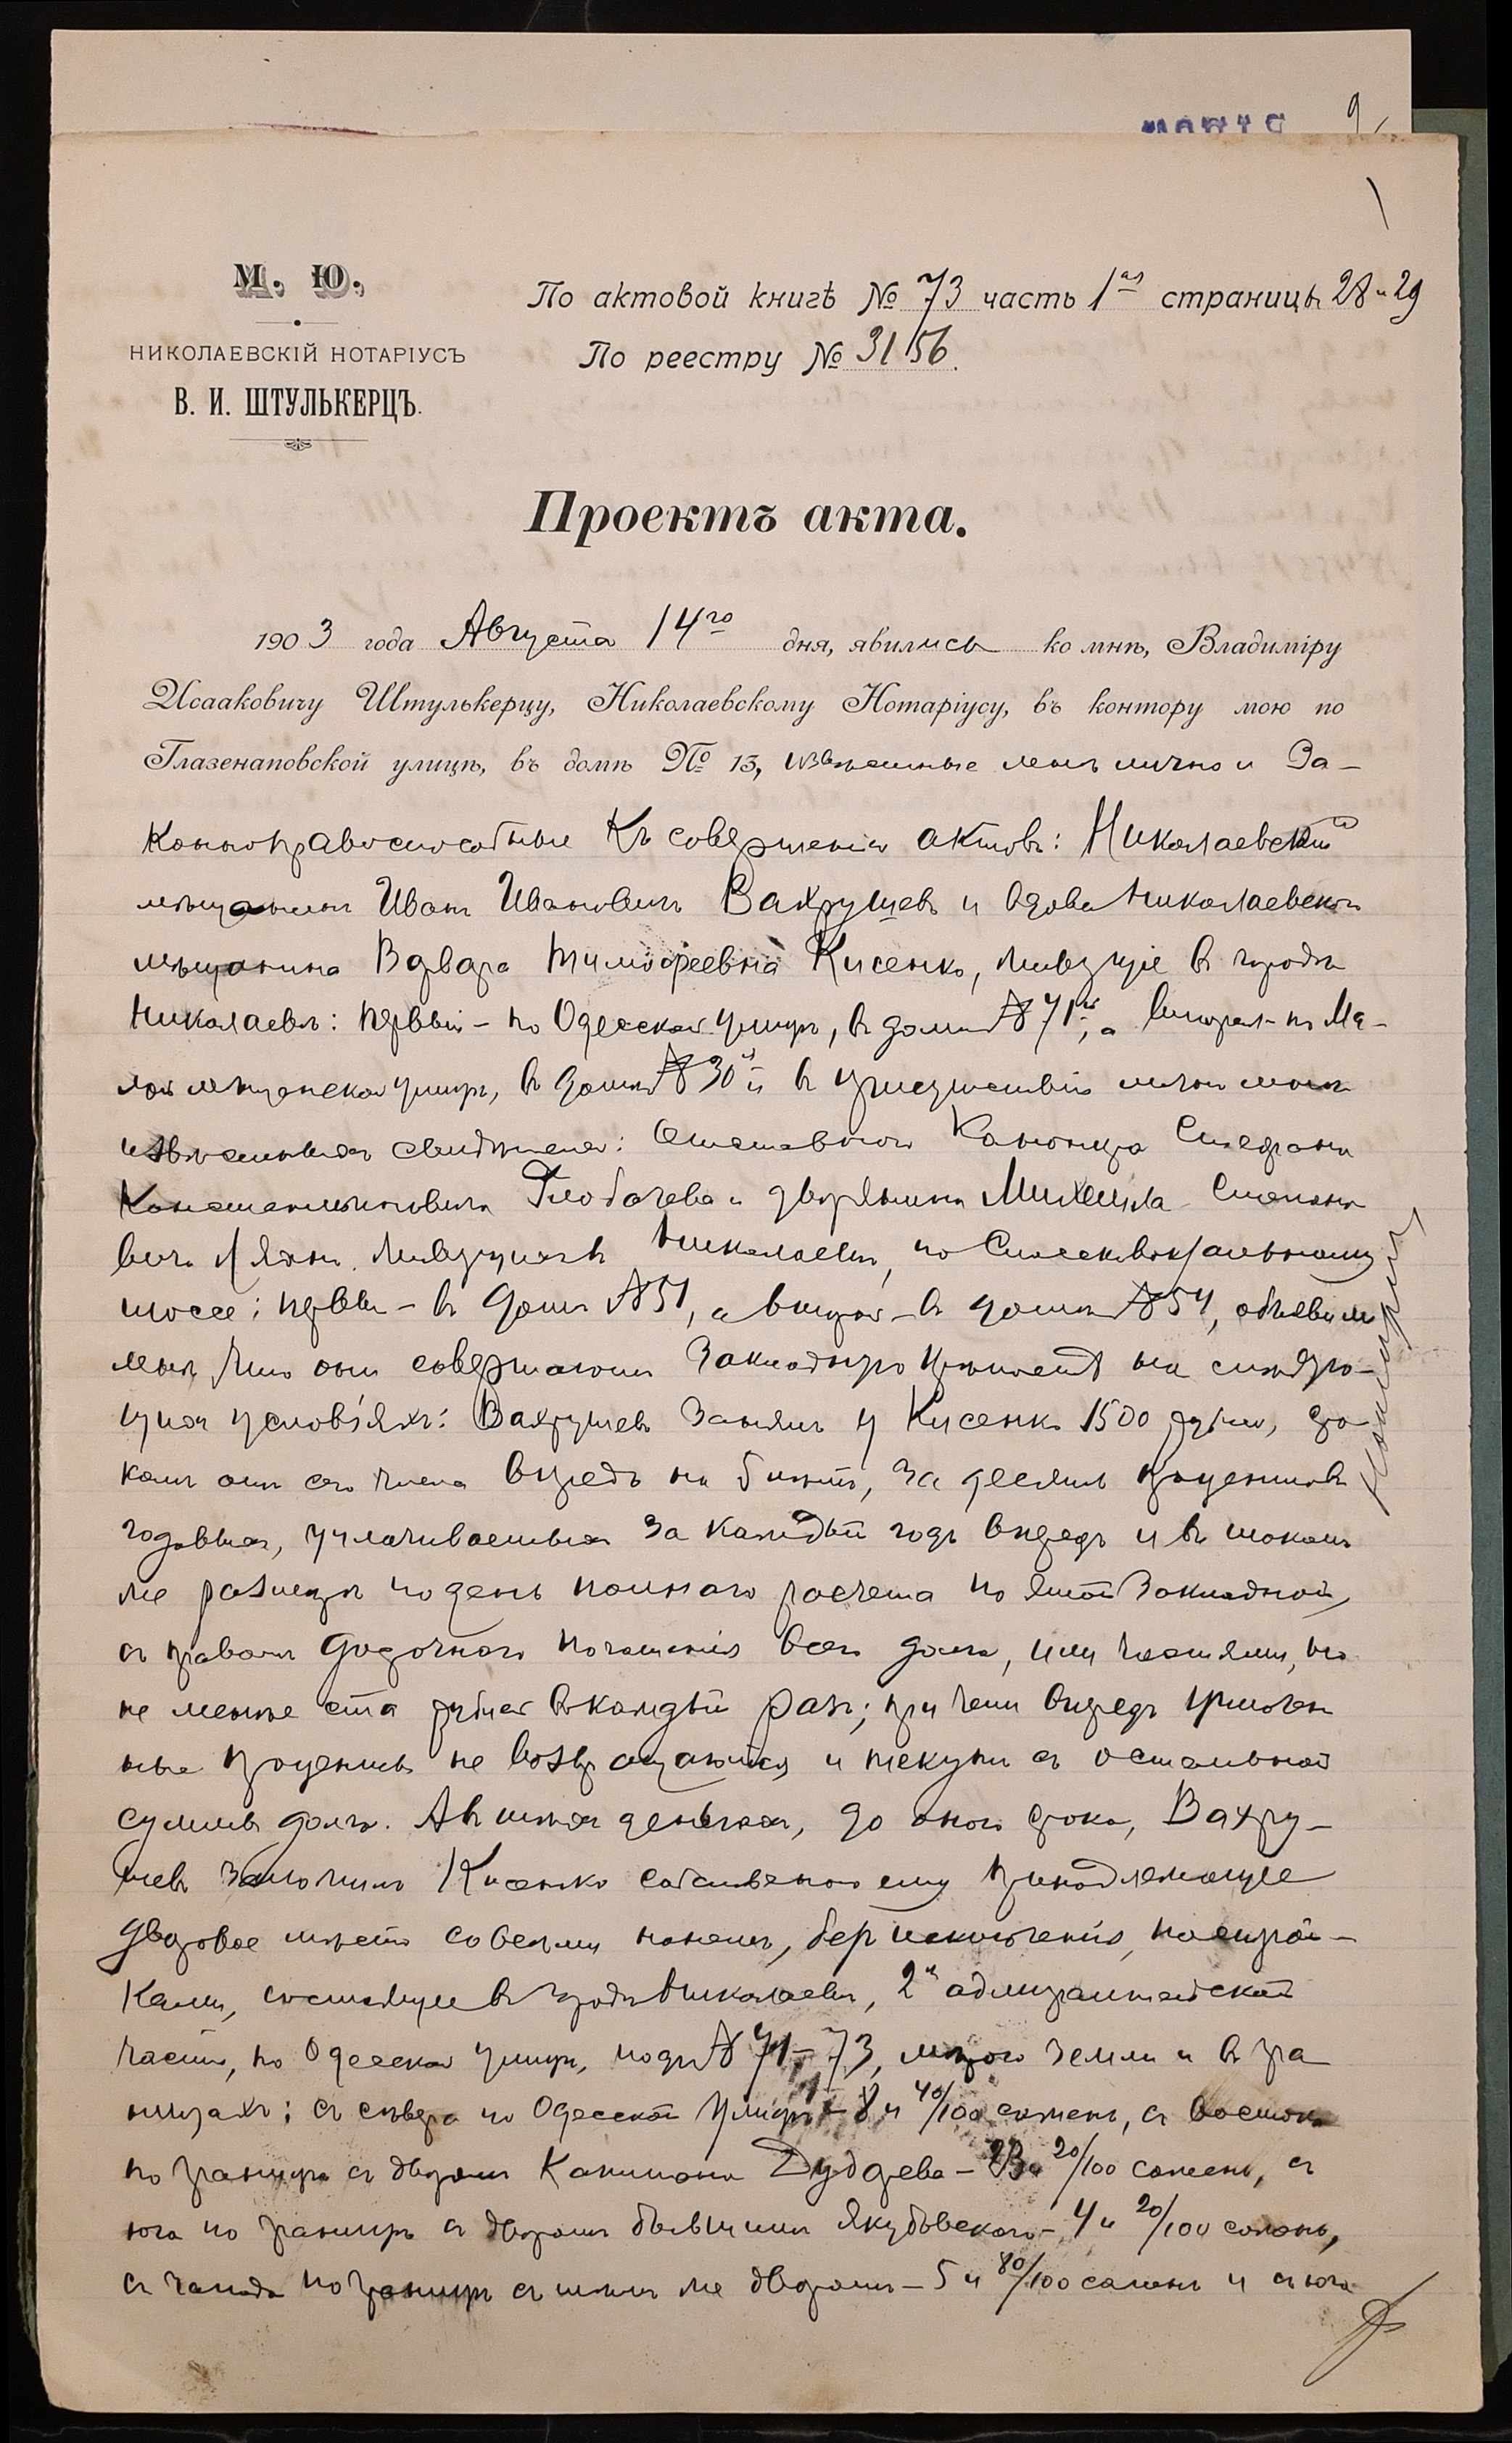 9
М. Ю.
НИКОЛАЕВСКІЙ НОТАРІУСЪ
В. И. ШТУЛЬКЕРЦЪ.
По актовой книгѣ № 73 часть 1ая страницы 28 и 29
По реестру № 3156.
Проектъ акта.
1903 года Августа 14го дня, явились ко мнѣ, Владиміру
Исааковичу Штулькерцу, Николаевскому Нотаріусу, въ контору мою по
Глазенаповской улицѣ, въ домѣ № 13, извѣстные мнѣ лично и За-
коноправоспособные къ совершенію актовъ: Николаевскій
мѣщанинъ Иванъ Ивановичъ Вахрушевъ и вдова Николаевскаго
мѣщанина Варвара Тимофеевна Кисенко, живущіе въ городѣ
Николаевѣ: первый - по Одесской улицѣ, въ домѣ № 71й, а вторая - по Ма-
лой мѣщанской улицѣ, въ домѣ № 30й в присутствіи лично мнѣ
извѣстныхъ свидѣтелей: отставного Стефана
Константиновича Глобачева и дворянина Михаила Степано
вича живущихъ в Николаевѣ, по Спасскому
шоссе: первый - въ домѣ № 51, а второй - въ домѣ № 54, объявили
мнѣ что они совершаютъ Закладную крѣпость на слѣдую-
щихъ условіяхъ: Вахрушевъ занялъ у Кисенко 1500 рублей, сро
комъ отъ сего числа впредь на лѣтъ, за десять процентовъ
годовыхъ, уплачиваемыхъ за каждый годъ впередъ и въ такомъ
же размѣрѣ по день полнаго расчета по этой Закладной,
съ правомъ досрочнаго погашенія всего долга, или частями, но
не менѣе ста рублей въ каждый разъ; при чемъ впередъ уплочен
ные проценты не возвращаются и текутъ съ остальной
суммы долга. А въ тѣхъ деньгахъ, до оного срока, Вахру-
шевъ заложилъ Кисенко собственно ему принадлежащее
дворовое мѣсто со всѣми на немъ, безъ исключенія, построй-
ками, состоящее въ городѣ Николаевѣ, 2й адмиралтейской
части, по Одесской улицѣ, подъ № 71-73, мѣрою земли и въ гра
ницахъ: съ сѣвера по Одесской улицѣ - 8 и 40/100 сажень, съ востока
по границѣ съ дворомъ Капитана Дудорева - 23 и 20/100 сажень, съ
юга по границѣ съ дворомъ бывшимъ Якубовскаго - 4 и 20/100 сажень,
съ запада по границѣ съ тѣмъ же дворомъ - 5 и 80/100 сажень и съ юга